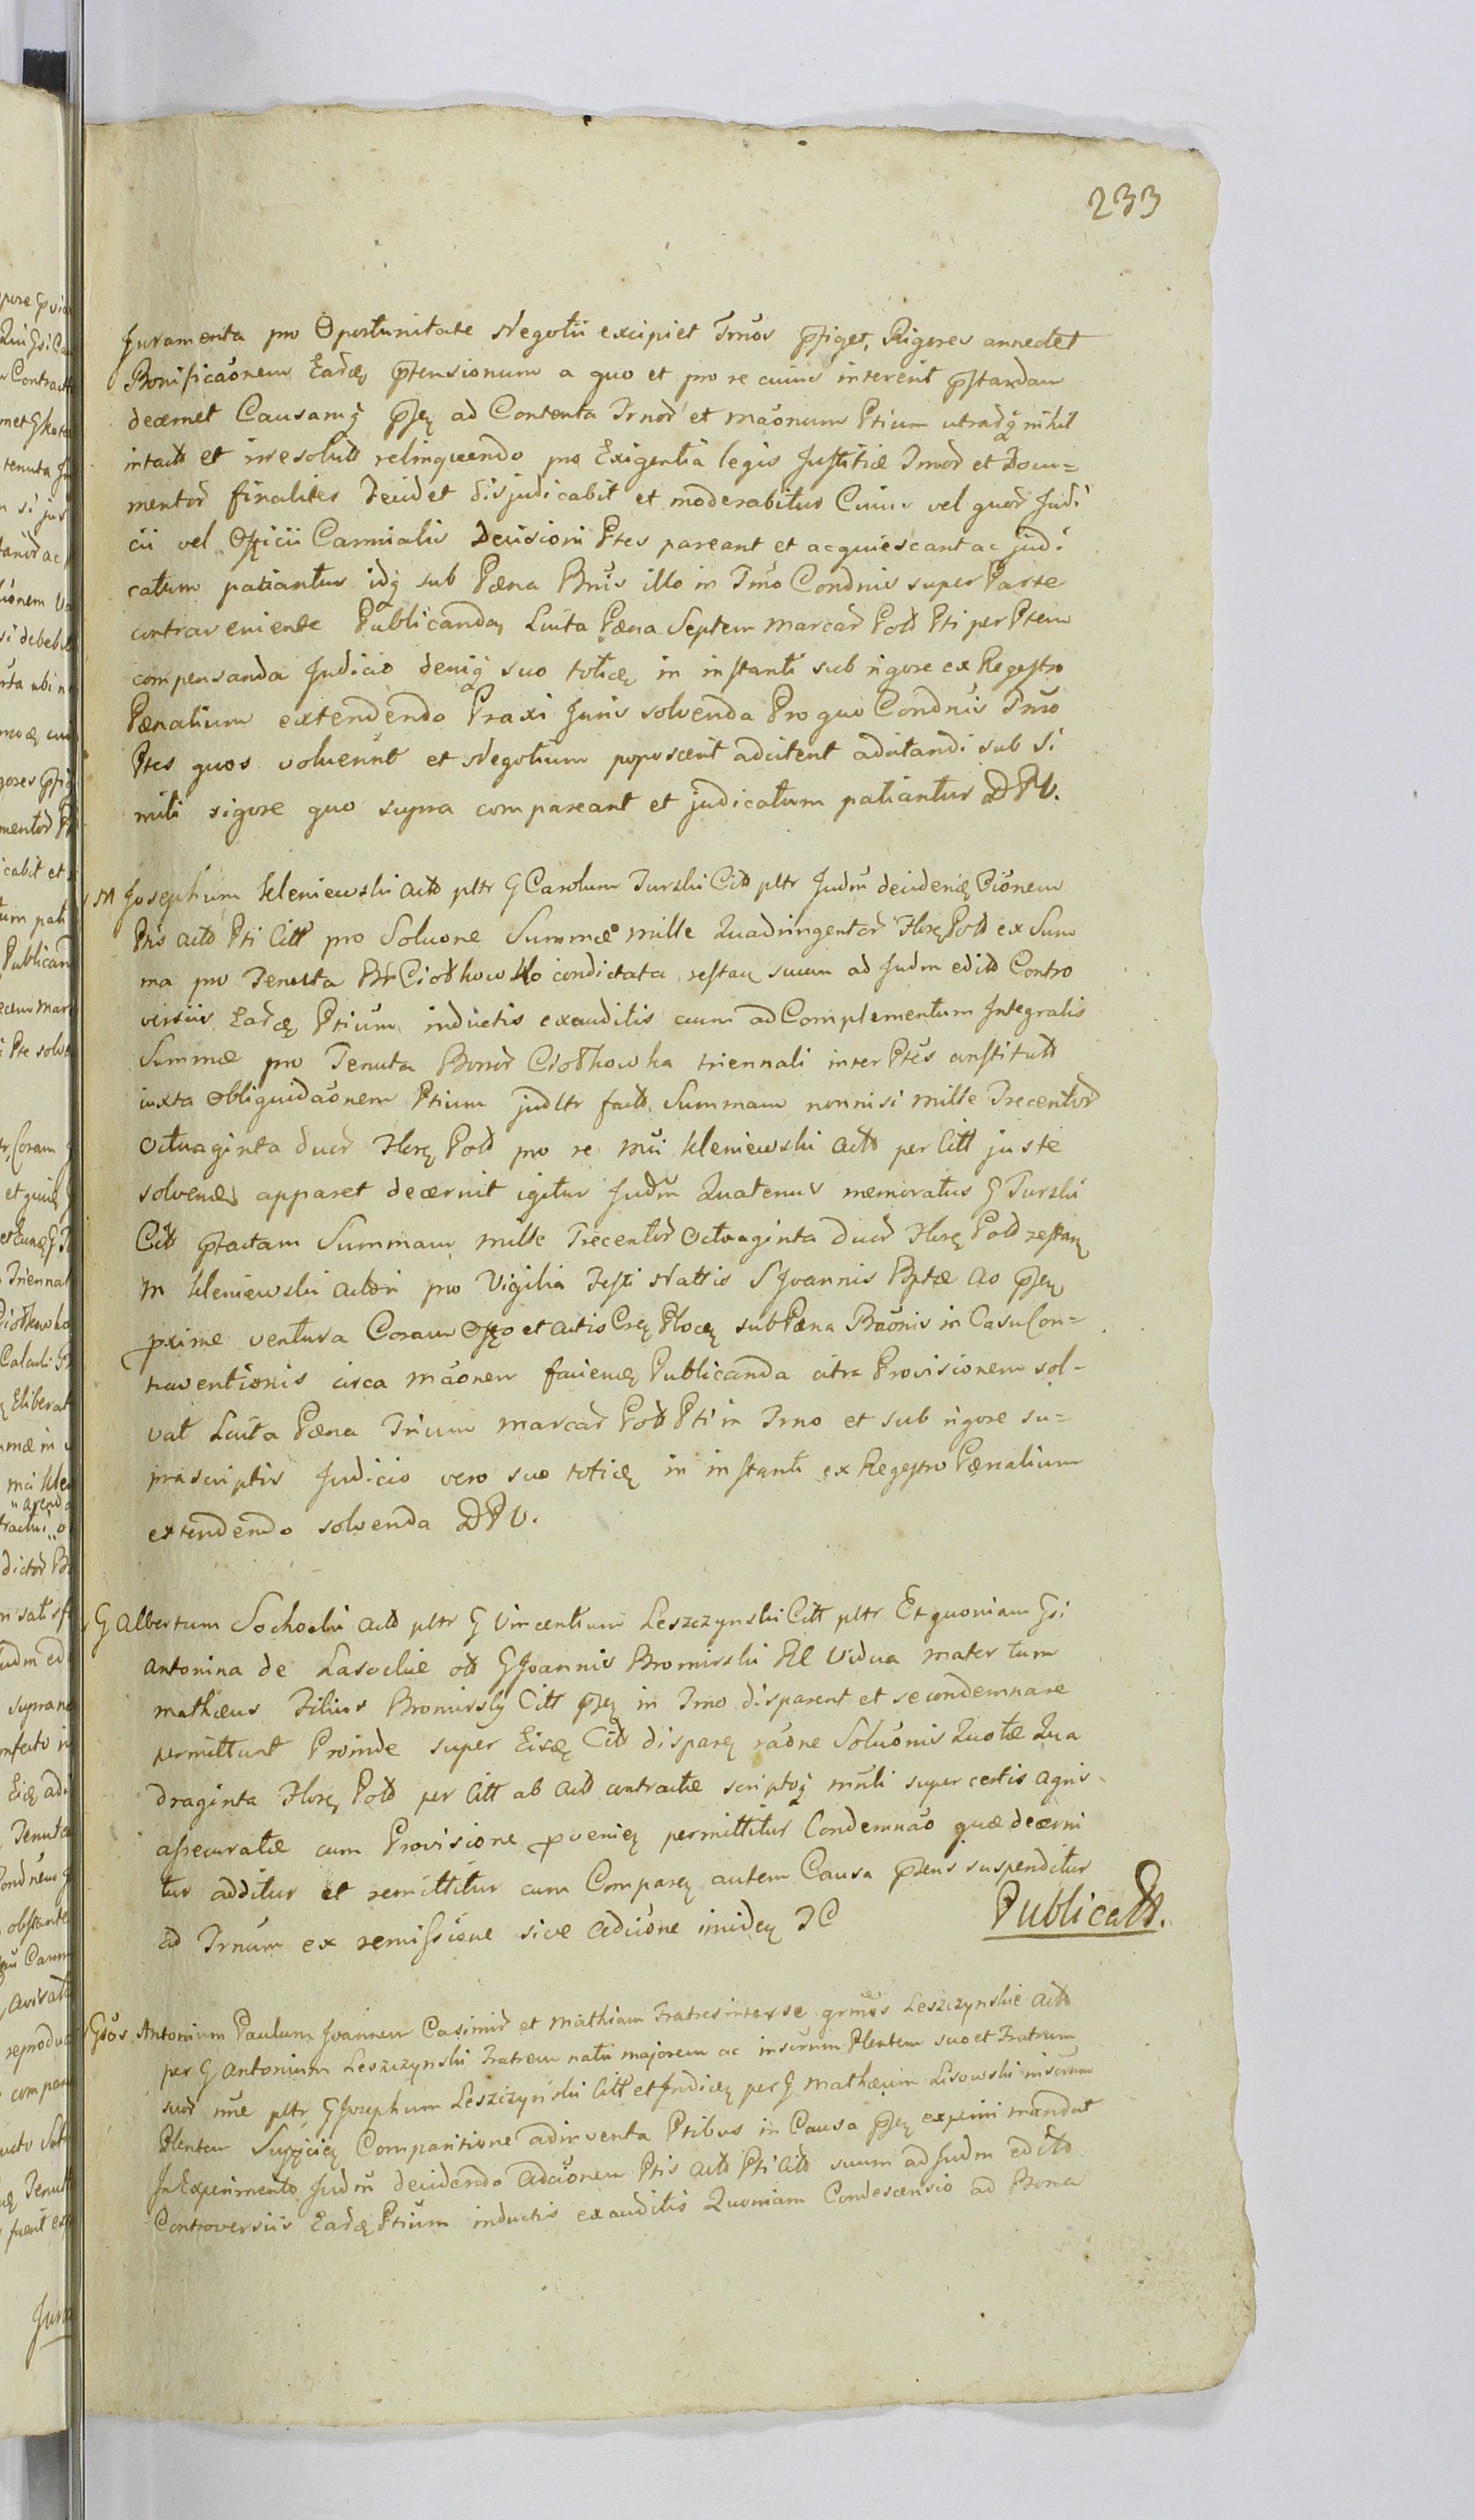 233
Juramenta pro Oportunitate Negotii excipiet Trnos pfiget, Rigores annectet
Bonificaonem Eardę ptensionum a quo et pro re cuius intererit pstandam
decernet Causamq psę ad Contenta Trnor et maonum Ptium utrarq nihil
intact et irresolut relinquendo pro Exigentia legis Justitiæ Trnor et Docu=
mentor finaliter Decidet disjudicabit et moderabitur Cuius vel quor Judi
cii vel Officii Camialis Decisioni Ptes pareant et acquiescant ac judi
catum patiantur idq sub Pæna Bnis illo in Trno Condnis super Parte
contraveniente Publicanda, Luita Pæna Septem marcar Pol Pti per Ptem
compensanda Judicio deniq suo toticę in instanti sub rigore ex Regestro
Pænalium extendendo Praxi Juris solvenda Pro quo Condnis Trno
Ptes quos voluerint et Negotium poposcerit adcitent adcitandi sub si
mili rigore quo supra compareant et judicatum patiantur DPV.
M Josephum Kleniewski act pltr G Carolum Turski Cit pltr Judm decidenę Cionem
Ptis act Pti Citt pro Soluone Summæ mille Quadringentor Florę Pol ex Sum
ma pro Tenuta Br Ciołkowko condictata restan suum ad Judm edit Contro
versiis Eardę Ptium inductis exauditis cum ad Complementum Integralis
Summæ pro Tenuta Bonor Ciołkowka triennali inter Ptes constitut
iuxta Obliquidaonem Ptium judltr fact Summam nonnisi mille Trecentor
Octuaginta duar Florę Pol pro re mci Kleniewski act per Citt juste
solvenę apparet decernit igitur Judm Quatenus memoratus G Turski
Cit ptactam Summam mille Trecentor Octuaginta duar Florę Pol restanę
M Kleniewski actori pro Vigilia Festi Nattis S Joannis Bptæ ao psę
proxime ventura Coram Offo et actis Crę Plocę sub Pæna Baonis in Casu Con=
traventionis circa maonem facienę Publicanda citra Provisionem sol-
vat Luita Pæna Trium marcar Pol Pti in Trno et sub rigore su=
prascriptis Judicio vero suo toticę in instanti ex Regestro Pænalium
extendendo solvenda DPV.
G Albertum Sochocki act pltr G Vincentium Leszczynski Citt pltr Et quoniam Gsi
Antonina de Lasockie ol G Joannis Bromirski Rel Vidua mater tum
mathæus Filius Bromirscy Citt psę in Trno disparent et se condemnare
permittunt Proinde super Eisdę Cit disparę raone Soluonis Quotæ Qua
draginta Florę Pol per Citt ab act contractæ scriptoq mnli super certis agris
assecuratæ cum Provisione provenię permittitur Condemnao quæ decerni
tur additur et remittitur cum Comparę autem Causa psens suspenditur
ad Trnum ex remissione sive adcione imidę TC
Publicatt.
Gsos Antonium Paulum Joannem Casimir et Mathiam Fratres inter se grmos Leszczynskie act
per G Antonium Leszczynski Fratrem natu majorem ac inscrum Plentem suo et Fratrum
suor nne pltr G Josephum Leszczynski Citt et Judicę per G Mathæum Lisowski inscrum
Plentem Sufficię Comparitione adinventa Ptibus in Causa psę experiri mandat
In Experimento Judm decidendo adcionem Ptis act Pti Cit suum ad Judm edit
Controversiis Eardę Ptium inductis exauditis Quoniam Condescensio ad Bona